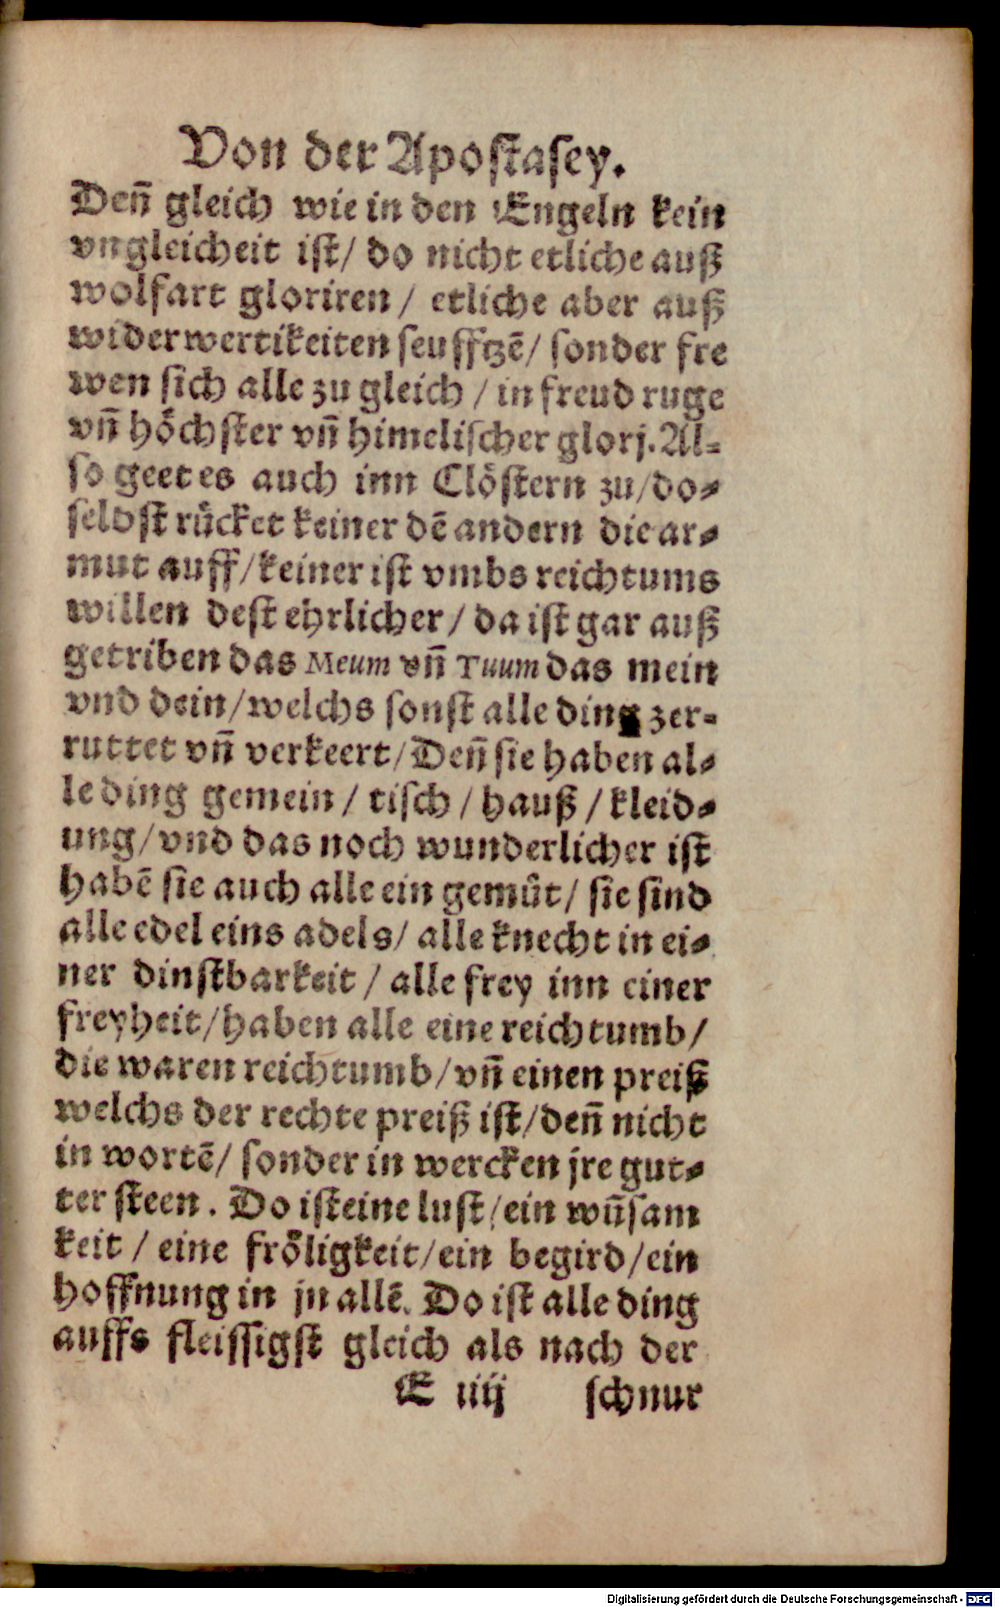 Von der Apostasey.
Deñ gleich wie in den Engeln kein
vngleicheit ist/ do nicht etliche auß
wolfart gloriren / etliche aber auß
widerwertikeiten seufftzē/ sonder fre
wen sich alle zu gleich / in freud ruge
vñ hoͤchster vñ himelischer glorj. Al⸗
so geet es auch inn Cloͤstern zu/do⸗
selbst ruͤcket keiner dē andern die ar⸗
mut auff/keiner ist vmbs reichtums
willen dest ehrlicher/ da ist gar auß
getriben das Meum vñ Tuum das mein
vnd dein/welchs sonst alle ding zer⸗
ruttet vñ verkeert/Deñ sie haben al⸗
le ding gemein / tisch / hauß / kleid⸗
ung/vnd das noch wunderlicher ist
habē sie auch alle ein gemuͤt/ sie sind
alle edel eins adels/ alle knecht in ei⸗
ner dinstbarkeit / alle frey inn einer
freyheit/haben alle eine reichtumb/
die waren reichtumb/vñ einen preiß
welchs der rechte preiß ist/deñ nicht
in wortē/ sonder in wercken jre gut⸗
ter steen. Do ist eine lust/ein wuñsam
keit / eine froͤligkeit/ein begird/ein
hoffnung in jn allē. Do ist alle ding
auffs fleissigst gleich als nach der
E iiij schnur
Digitalisierung gefördert durch die Deutsche Forschungsgemeinschaft - DFG